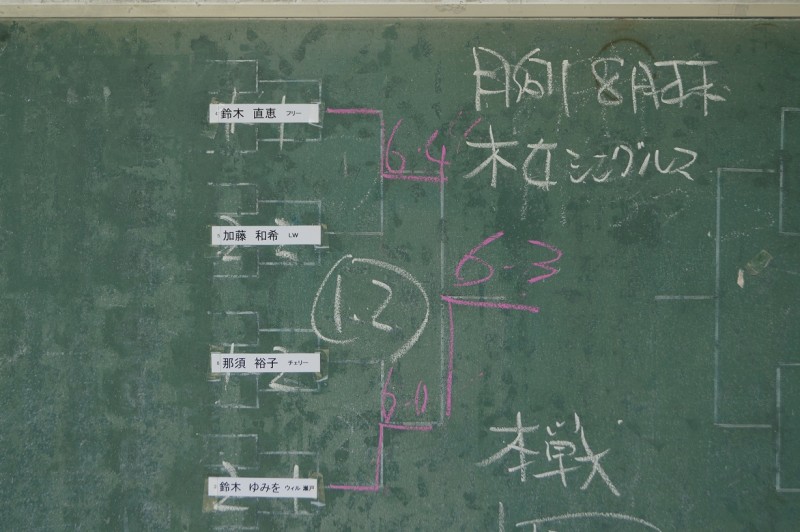 8月杯
女シングルス
鈴木 直恵 フリー
6-4
加藤 和希 LW
6-3
1.2
那須 裕子 チェリー
6-0
本戦
鈴木 ゆみを ウィル瀬戸